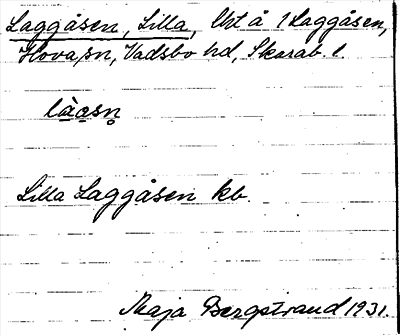 Laggåsen, Lilla, Ukt å 1 Laggåsen,
Hova sn, Vadsbo hd, Skarab. l.
Lilla Laggåsen kb.
Maja Bergstrand 1931.